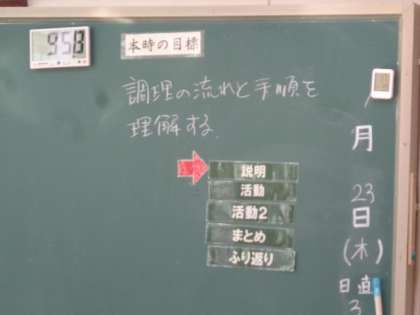 9:58
本時の目標
調理の流れと手順を
理解する
説明
活動
活動2
まとめ
ふり返り
月
23
日
(木)
日直
3